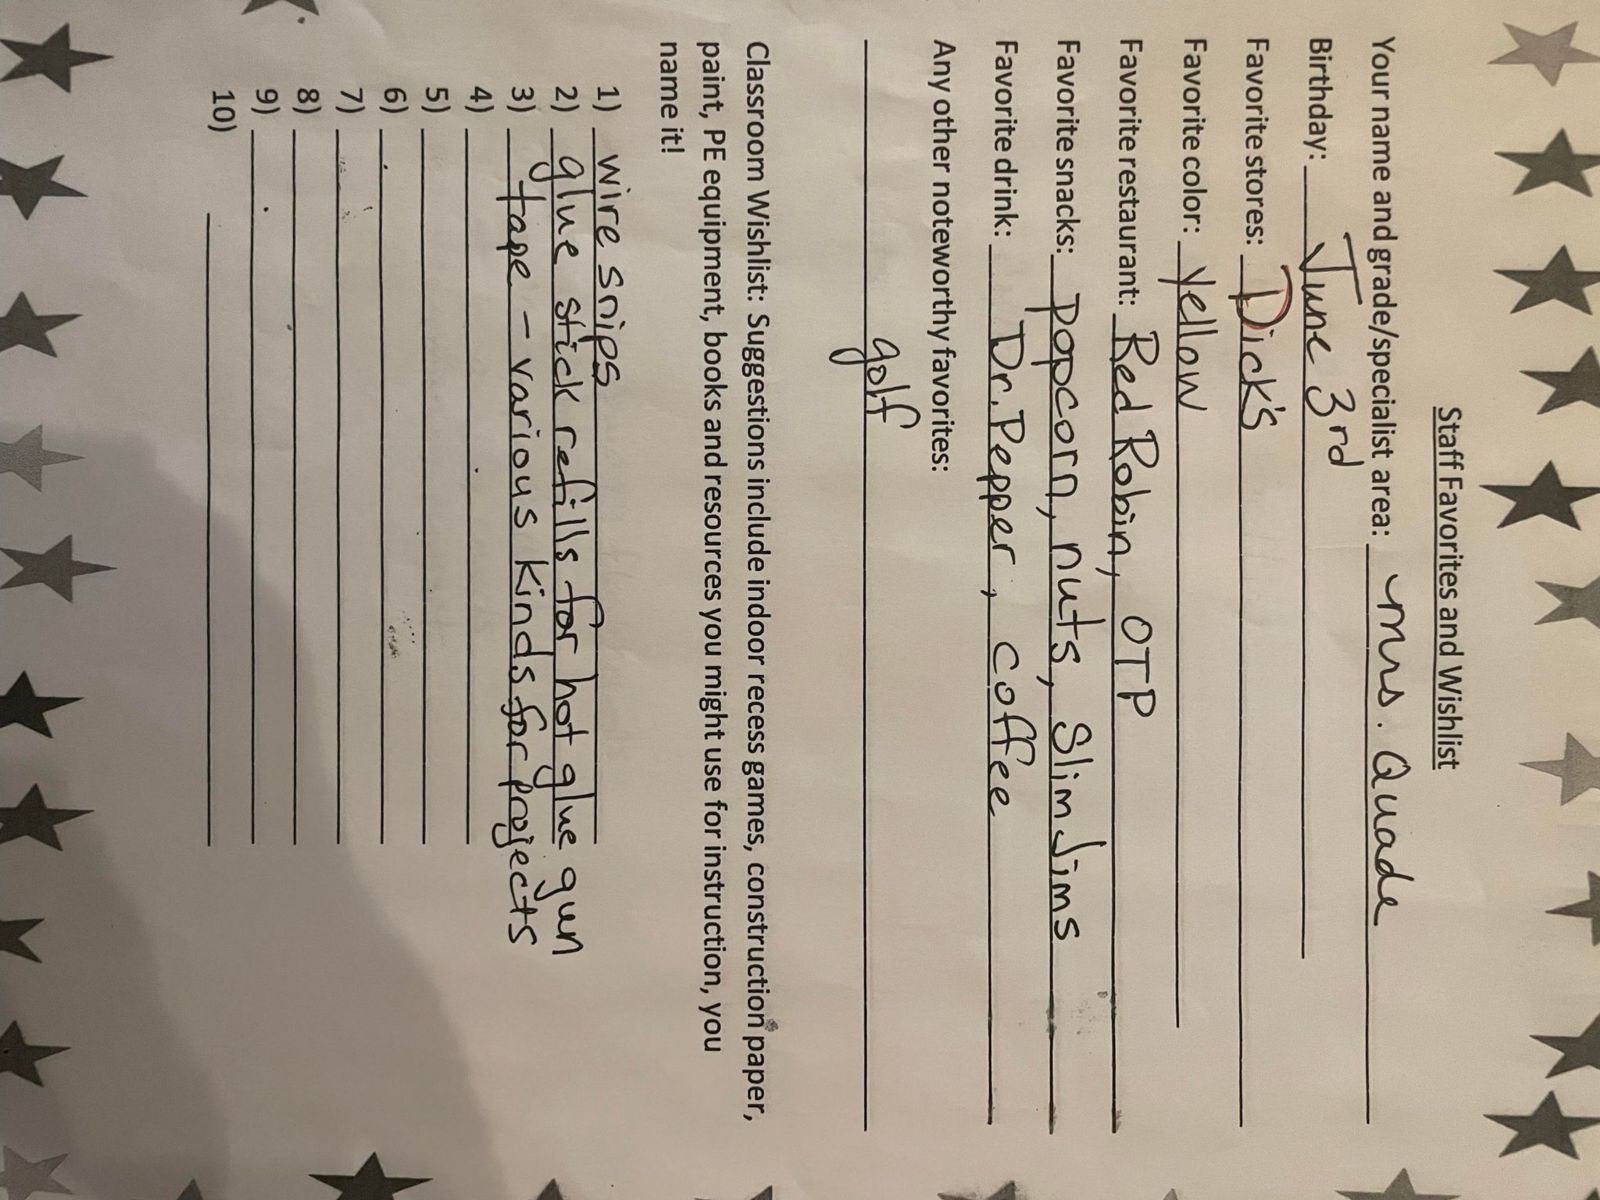 Staff Favorites and Wishlist
Your name and grade/specialist area: Mrs. Quade
Birthday: June 3rd
Favorite stores: Dick's
Favorite color: Yellow
Favorite restaurant: Red Robin, OTP
Favorite snacks: popcorn, nuts, Slim Jims
Favorite drink: Dr. Pepper, coffee
Any other noteworthy favorites:
golf
Classroom Wishlist: Suggestions include indoor recess games, construction paper,
paint, PE equipment, books and resources you might use for instruction, you
name it!
1) wire snips
2) glue stick refills for hot glue gun
3) tape - various kinds for projects
4)
5)
6)
7)
8)
9)
10)